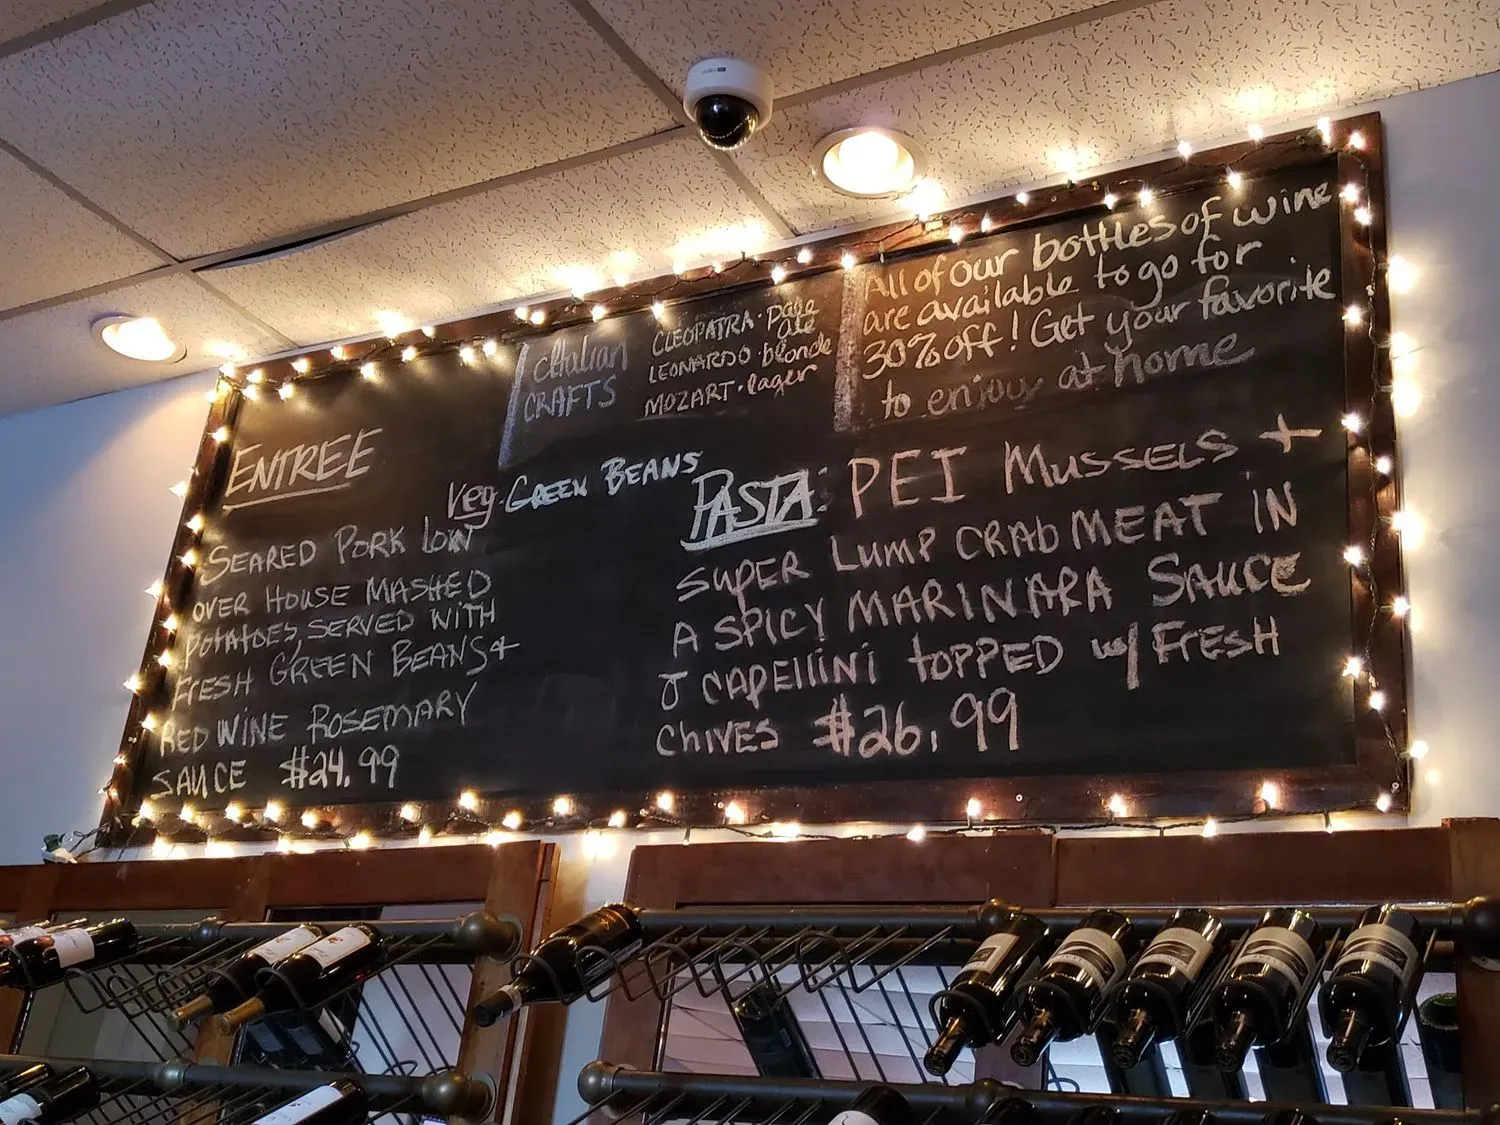 Italian
CRAFTS
CLEOPATRA · Pale
ale
LEONARDO · blonde
MOZART · lager
All of our bottles of wine
are available to go for
30% off! Get your favorite
to enjoy at home
ENTREE
Veg. GREEN BEANS
SEARED PORK LOIN
OVER HOUSE MASHED
POTATOES, SERVED WITH
FRESH GREEN BEANS +
RED WINE ROSEMARY
SAUCE $24.99
PASTA: PEI MUSSELS +
SUPER LUMP CRAB MEAT IN
A SPICY MARINARA SAUCE
CAPELLINI TOPPED w/ FRESH
CHIVES $26.99